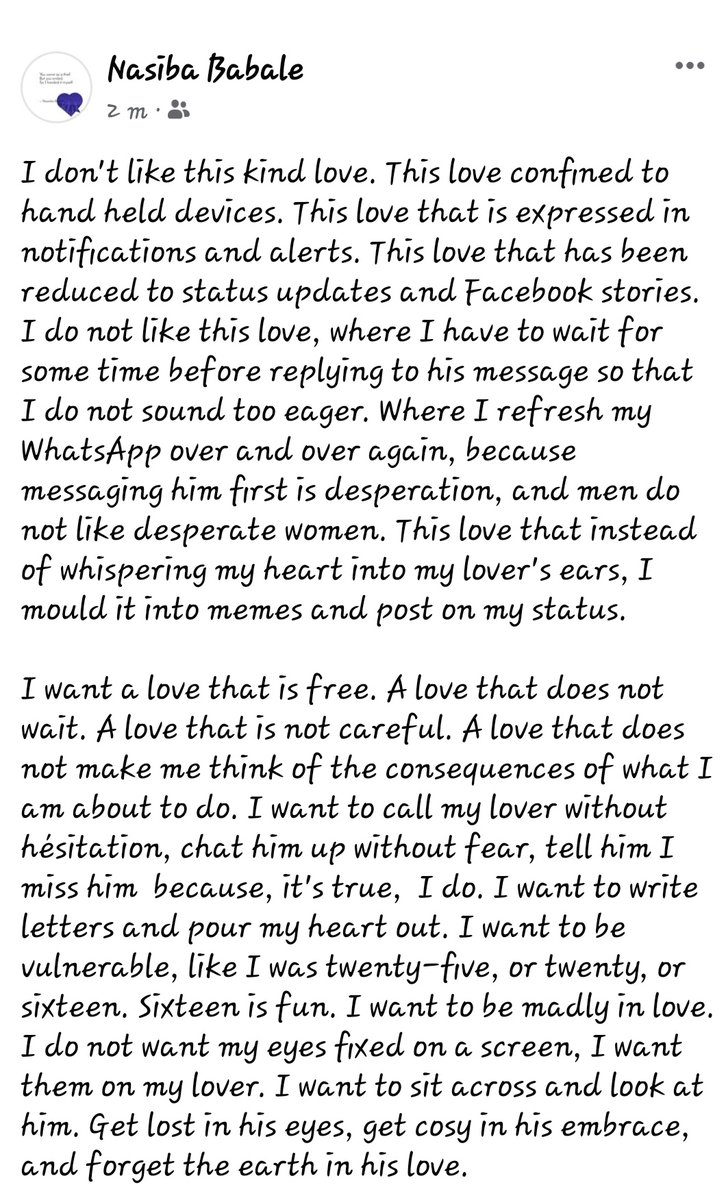 Nasiba Babale
2 m ·
I don't like this kind love. This love confined to
hand held devices. This love that is expressed in
notifications and alerts. This love that has been
reduced to status updates and Facebook stories.
I do not like this love, where I have to wait for
some time before replying to his message so that
I do not sound too eager. Where I refresh my
WhatsApp over and over again, because
messaging him first is desperation, and men do
not like desperate women. This love that instead
of whispering my heart into my lover's ears, I
mould it into memes and post on my status.
I want a love that is free. A love that does not
wait. A love that is not careful. A love that does
not make me think of the consequences of what I
am about to do. I want to call my lover without
hésitation, chat him up without fear, tell him I
miss him  because, it's true,  I do. I want to write
letters and pour my heart out. I want to be
vulnerable, like I was twenty-five, or twenty, or
sixteen. Sixteen is fun. I want to be madly in love.
I do not want my eyes fixed on a screen, I want
them on my lover. I want to sit across and look at
him. Get lost in his eyes, get cosy in his embrace,
and forget the earth in his love.